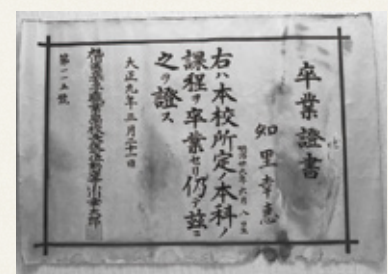 卒業證書
知里幸惠
明治卅六年六月八日生
右ハ本校所定ノ本科ノ
課程ヲ卒業セリ仍テ茲ニ
之ヲ證ス
大正九年三月二十一日
第一一五號